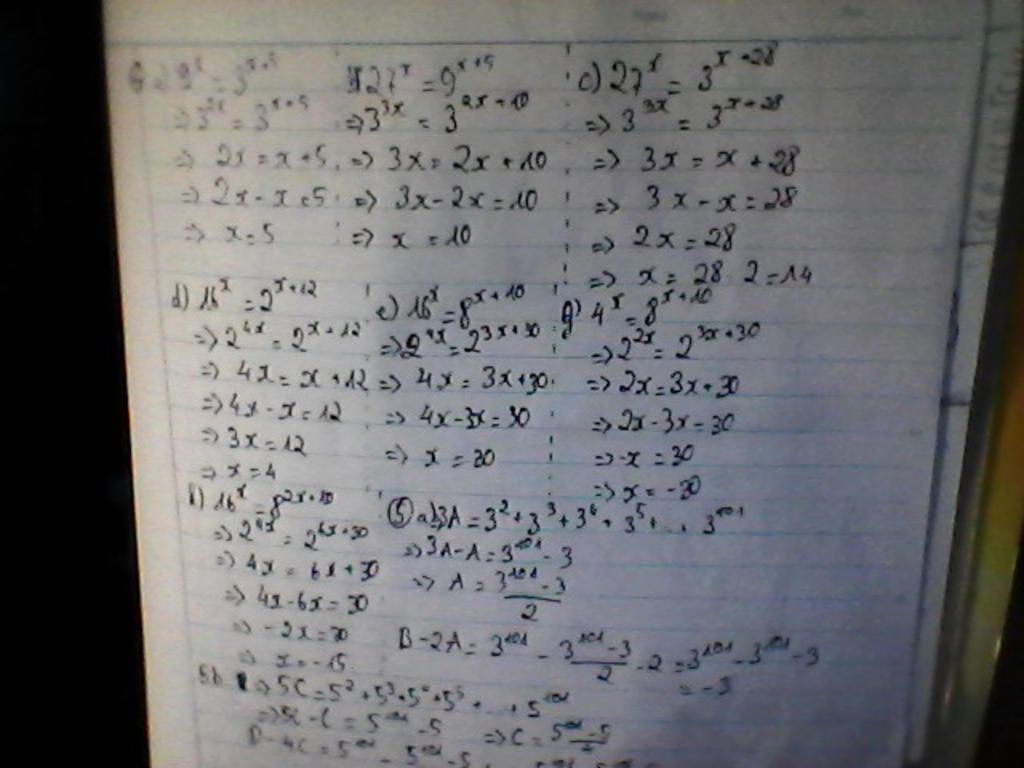 a) 9^x = 3^{x+5}
=> 3^{2x} = 3^{x+5}
=> 2x = x+5
=> 2x - x = 5
=> x = 5
27^x = 9^{x+5}
=> 3^{3x} = 3^{2x+10}
=> 3x = 2x + 10
=> 3x - 2x = 10
=> x = 10
c) 27^x = 3^{x+28}
=> 3^{3x} = 3^{x+28}
=> 3x = x + 28
=> 3x - x = 28
=> 2x = 28
=> x = 28 : 2 = 14
d) 16^x = 2^{x+12}
=> 2^{4x} = 2^{x+12}
=> 4x = x + 12
=> 4x - x = 12
=> 3x = 12
=> x = 4
e) 16^x = 8^{x+10}
=> 2^{4x} = 2^{3x+30}
=> 4x = 3x+30
=> 4x - 3x = 30
=> x = 30
g) 4^x = 8^{x+10}
=> 2^{2x} = 2^{3x+30}
=> 2x = 3x + 30
=> 2x - 3x = 30
=> -x = 30
=> x = -30
h) 16^x = 8^{2x+10}
=> 2^{4x} = 2^{6x+30}
=> 4x = 6x + 30
=> 4x - 6x = 30
=> -2x = 30
=> x = -15
⑤ a) 3A = 3^2 + 3^3 + 3^4 + 3^5 + ... + 3^{101}
=> 3A - A = 3^{101} - 3
=> A = \frac{3^{101} - 3}{2}
B - 2A = 3^{101} - \frac{3^{101} - 3}{2} . 2 = 3^{101} - 3^{101} - 3
= -3
5b => 5C = 5^2 + 5^3 + 5^4 + 5^5 + ... + 5^{101}
=> 5C - C = 5^{101} - 5 => C = \frac{5^{101} - 5}{4}
D - 4C = 5^{101} - 5^{101} - 5